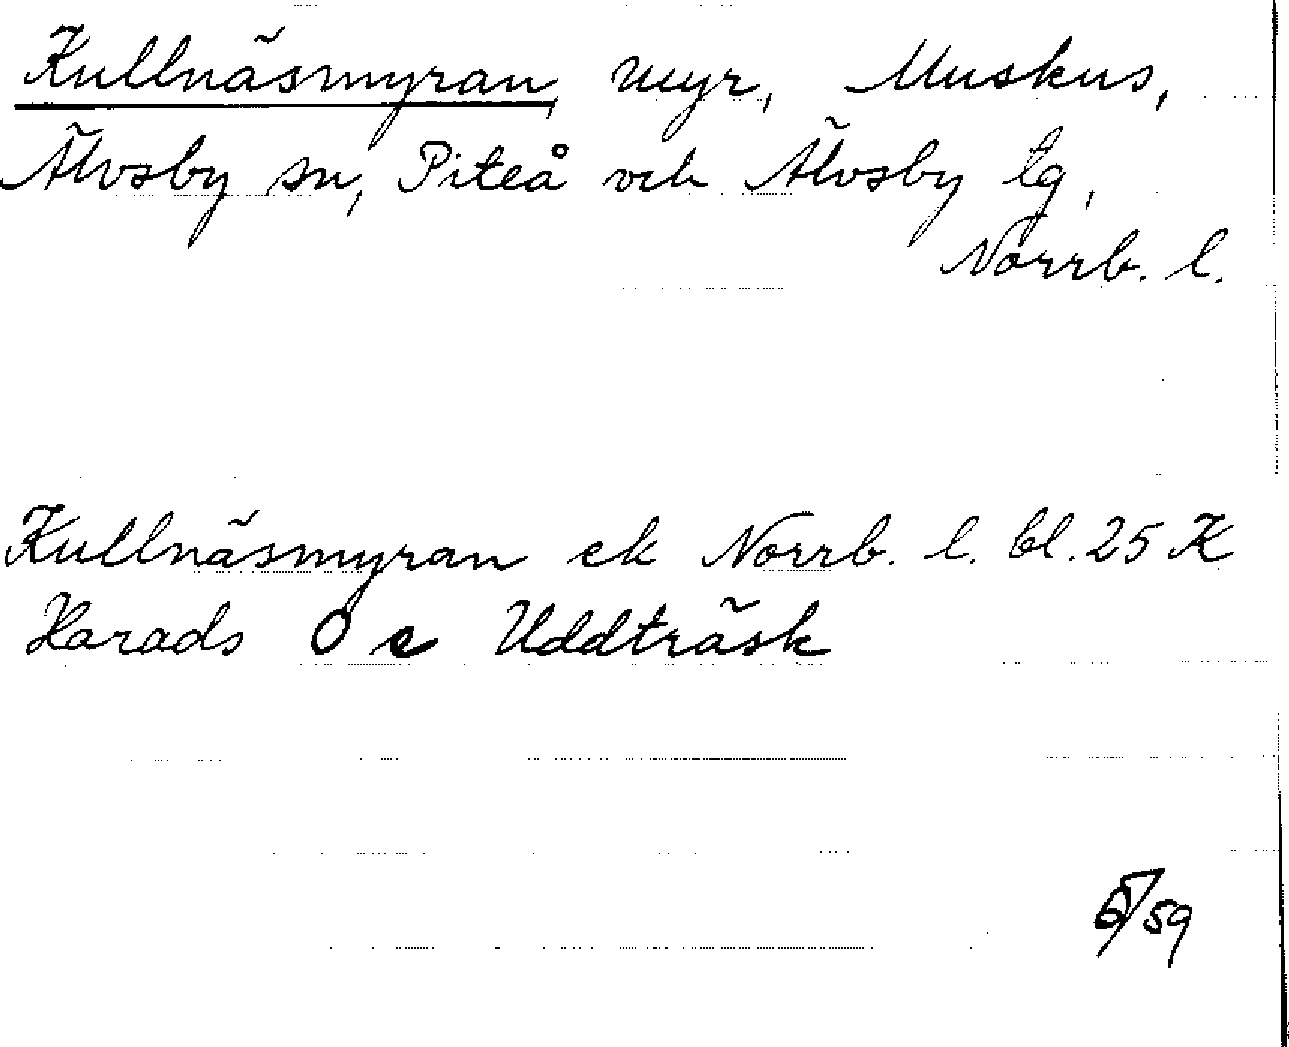 Kullnäsmyran, myr, Muskus,
Älvsby sn, Piteå och Älvsby tg,
Norrb. l.
Kullnäsmyran ek Norrb. l. bl. 25 K
Harads Ö c Uddträsk
/59